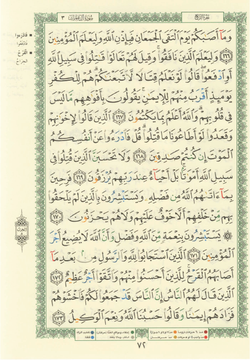 ٣
وَمَآ أَصَٰبَكُمْ يَوْمَ ٱلْتَقَى ٱلْجَمْعَانِ فَبِإِذْنِ ٱللَّهِ وَلِيَعْلَمَ ٱلْمُؤْمِنِينَ
١٦٦ وَلِيَعْلَمَ ٱلَّذِينَ نَافَقُوا۟ وَقِيلَ لَهُمْ تَعَالَوْا۟ قَٰتِلُوا۟ فِى سَبِيلِ ٱللَّهِ
أَوِ ٱدْفَعُوا۟ قَالُوا۟ لَوْ نَعْلَمُ قِتَالًا لَّٱتَّبَعْنَٰكُمْ هُمْ لِلْكُفْرِ
يَوْمَئِذٍ أَقْرَبُ مِنْهُمْ لِلْإِيمَٰنِ يَقُولُونَ بِأَفْوَٰهِهِم مَّا لَيْسَ
فِى قُلُوبِهِمْ وَٱللَّهُ أَعْلَمُ بِمَا يَكْتُمُونَ ١٦٧ ٱلَّذِينَ قَالُوا۟ لِإِخْوَٰنِهِمْ
وَقَعَدُوا۟ لَوْ أَطَاعُونَا مَا قُتِلُوا۟ قُلْ فَٱدْرَءُوا۟ عَنْ أَنفُسِكُمُ
ٱلْمَوْتَ إِن كُنتُمْ صَٰدِقِينَ ١٦٨ وَلَا تَحْسَبَنَّ ٱلَّذِينَ قُتِلُوا۟ فِى
سَبِيلِ ٱللَّهِ أَمْوَٰتًۢا بَلْ أَحْيَآءٌ عِندَ رَبِّهِمْ يُرْزَقُونَ ١٦٩ فَرِحِينَ
بِمَآ ءَاتَىٰهُمُ ٱللَّهُ مِن فَضْلِهِۦ وَيَسْتَبْشِرُونَ بِٱلَّذِينَ لَمْ يَلْحَقُوا۟
بِهِم مِّنْ خَلْفِهِمْ أَلَّا خَوْفٌ عَلَيْهِمْ وَلَا هُمْ يَحْزَنُونَ ١٧٠
۞ يَسْتَبْشِرُونَ بِنِعْمَةٍ مِّنَ ٱللَّهِ وَفَضْلٍ وَأَنَّ ٱللَّهَ لَا يُضِيعُ أَجْرَ
ٱلْمُؤْمِنِينَ ١٧١ ٱلَّذِينَ ٱسْتَجَابُوا۟ لِلَّهِ وَٱلرَّسُولِ مِنۢ بَعْدِ مَآ
أَصَابَهُمُ ٱلْقَرْحُ لِلَّذِينَ أَحْسَنُوا۟ مِنْهُمْ وَٱتَّقَوْا۟ أَجْرٌ عَظِيمٌ ١٧٢
ٱلَّذِينَ قَالَ لَهُمُ ٱلنَّاسُ إِنَّ ٱلنَّاسَ قَدْ جَمَعُوا۟ لَكُمْ فَٱخْشَوْهُمْ
فَزَادَهُمْ إِيمَٰنًا وَقَالُوا۟ حَسْبُنَا ٱللَّهُ وَنِعْمَ ٱلْوَكِيلُ ١٧٣
٧٢